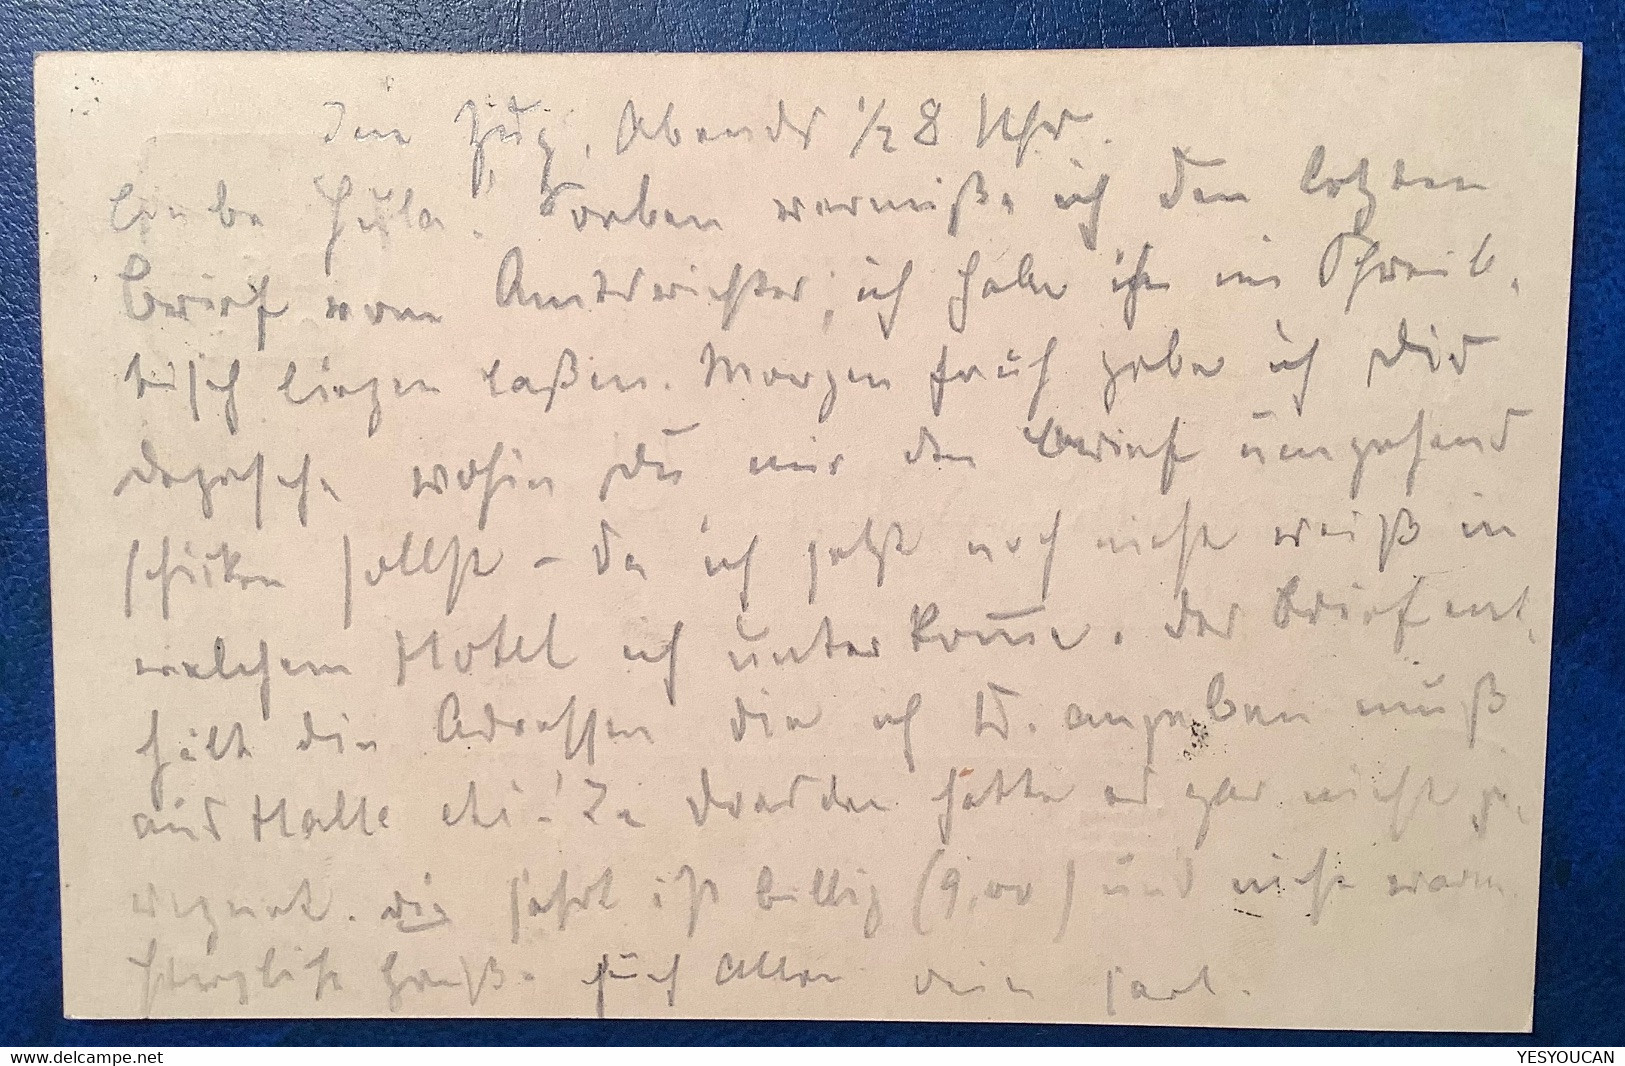 Im Zug, Abends 1/2 8 Uhr.
Liebe Hula! Soeben vermiße ich den letzten
Brief vom Amtsrichter, ich habe ihn im Schreib-
tisch liegen laßen. Morgen früh gebe ich Dir
Depesche wohin Du mir den Brief umgehend
schicken sollst – da ich jetzt noch nicht weiß in
welchem Hotel ich unterkom̅e. Der Brief ent-
hält die Adressen die ich W. angeben muß
aus Halle etc! In Dresden hatte es gar nicht ge-
regnet. Die Fahrt ist billig (9,00) und nicht warm
Herzliche Grüße Euch Allen Dein Carl.
YESYOUCAN
Kommentar zu diesem Text